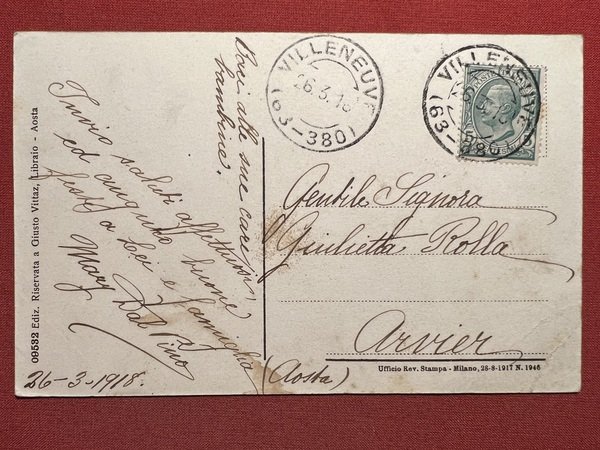 Baci alle sue care
bambine.
Invio saluti affettuosi,
ed auguro buone
feste a Lei e famiglia
Mary Dal Pino
26-3-1918.
09532 Ediz. Riservata a Giusto Vittaz, Libraio - Aosta
VILLENEUVE
26.3.18
(63-380)
VILLENEUVE
(63-380)
Gentile Signora
Giulietta Rolla
Arvier
(Aosta)
Ufficio Rev. Stampa - Milano, 28-8-1917 N. 1946